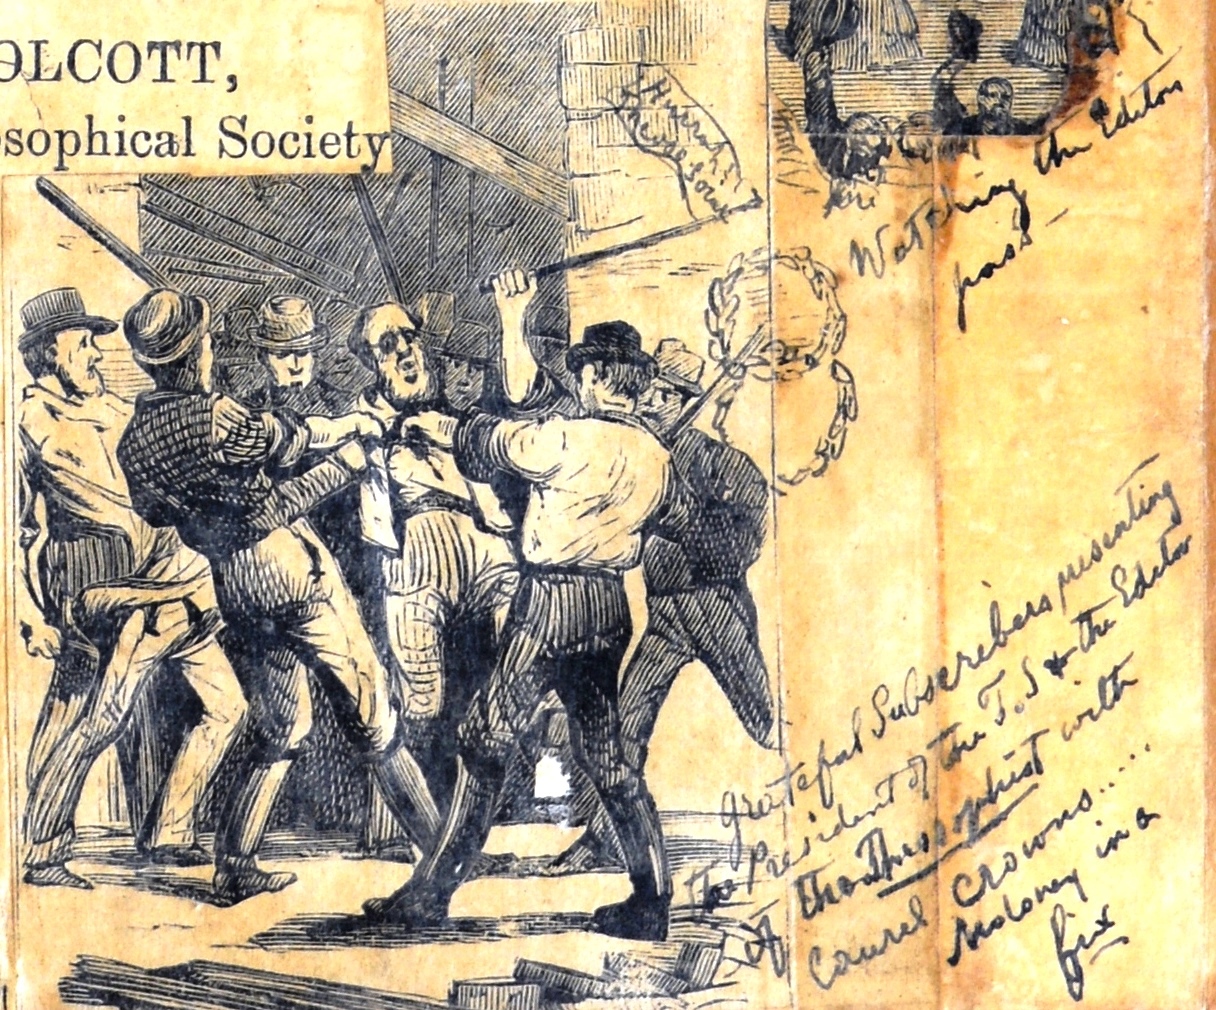 OLCOTT,
osophical Society
Hurrah!
Watching the Editors
pass —
grateful Subscribers presenting
the President of the T.S & the Editor
of the Theosophist with
laurel crowns.....
Moloney in a
fix